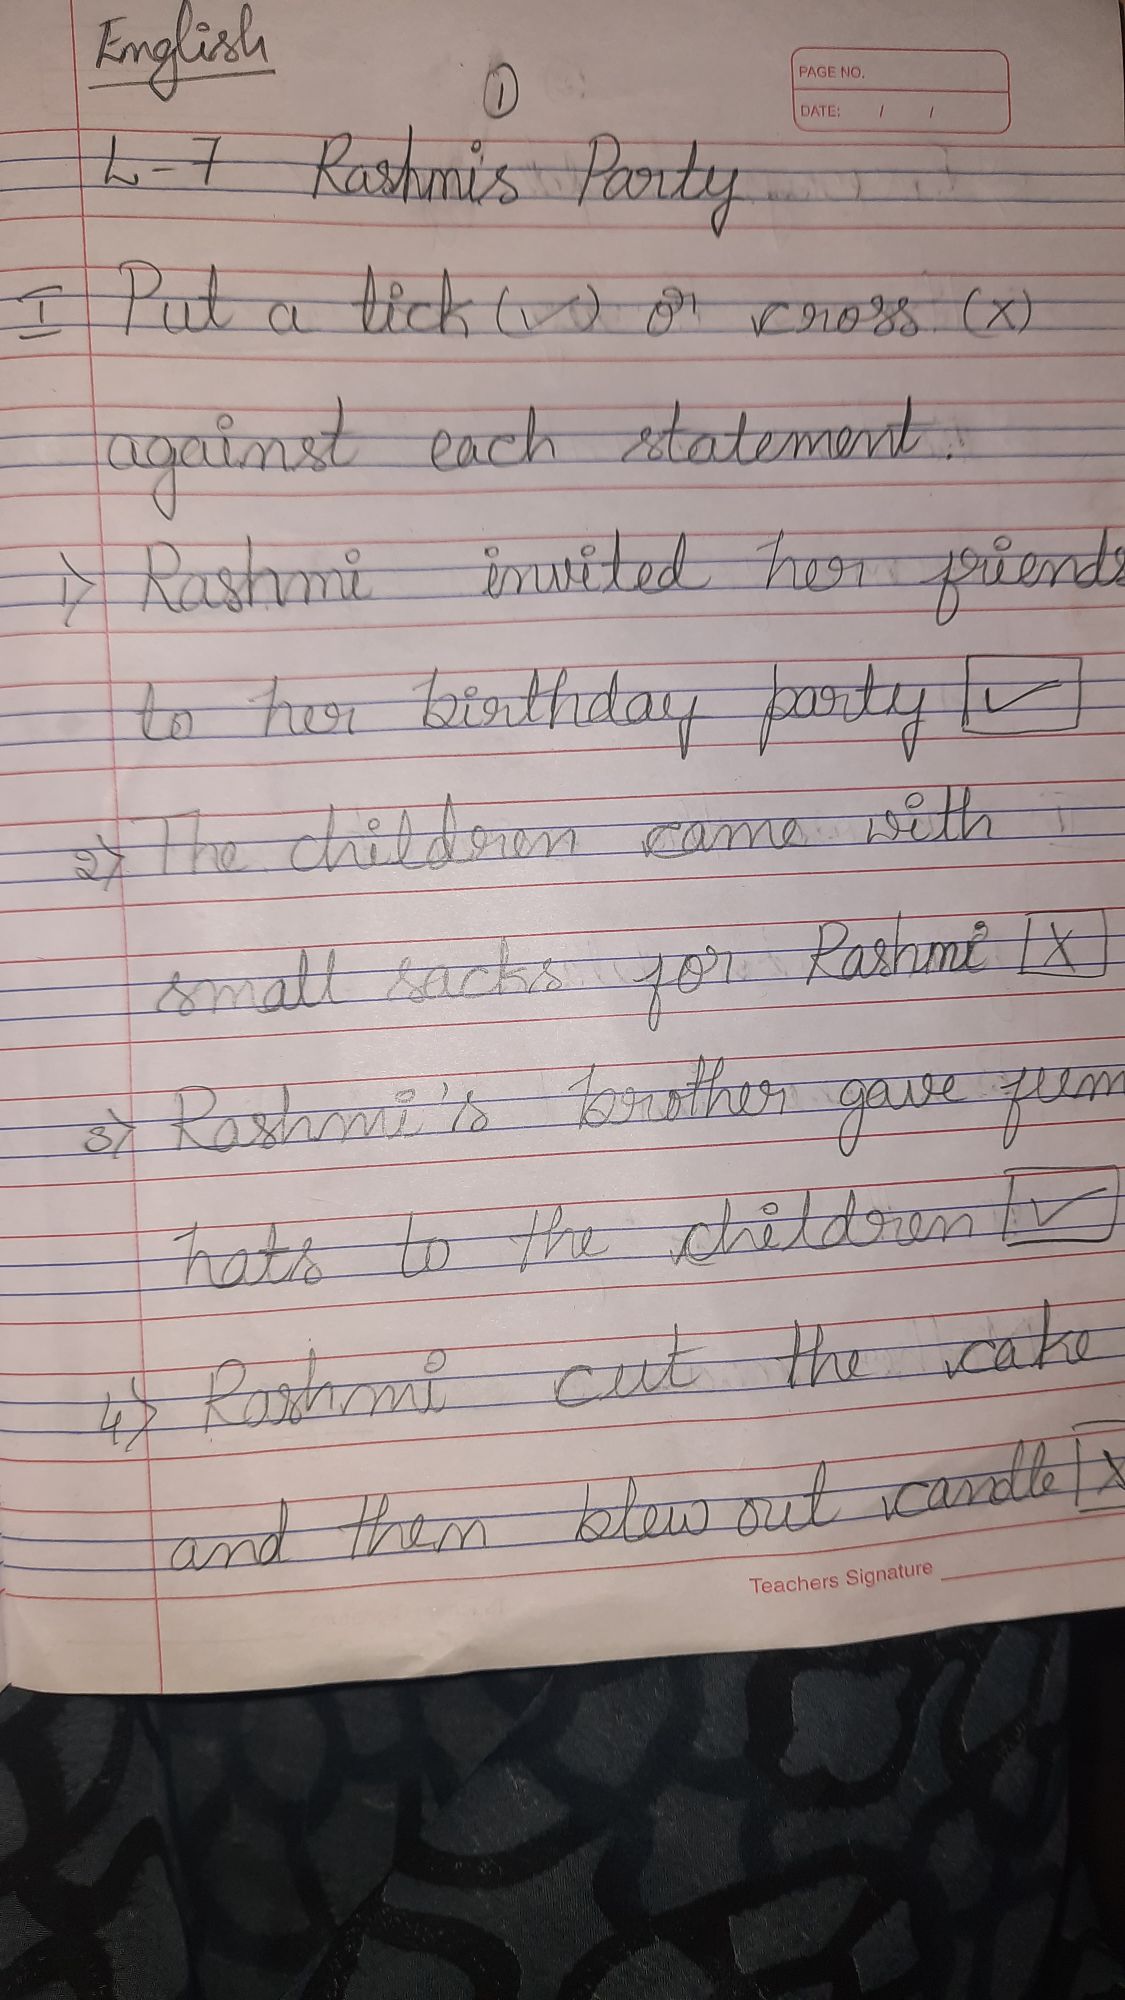 English
1
PAGE NO.
DATE: / /
L-7 Rashmi's Party
I Put a tick (✓) or cross (x)
against each statement.
1) Rashmi invited her friends
to her birthday party ✓
2) The children came with
small sacks for Rashmi x
3) Rashmi's brother gave
hats to the children ✓
4) Rashmi cut the cake
and then blew out candle x
Teachers Signature